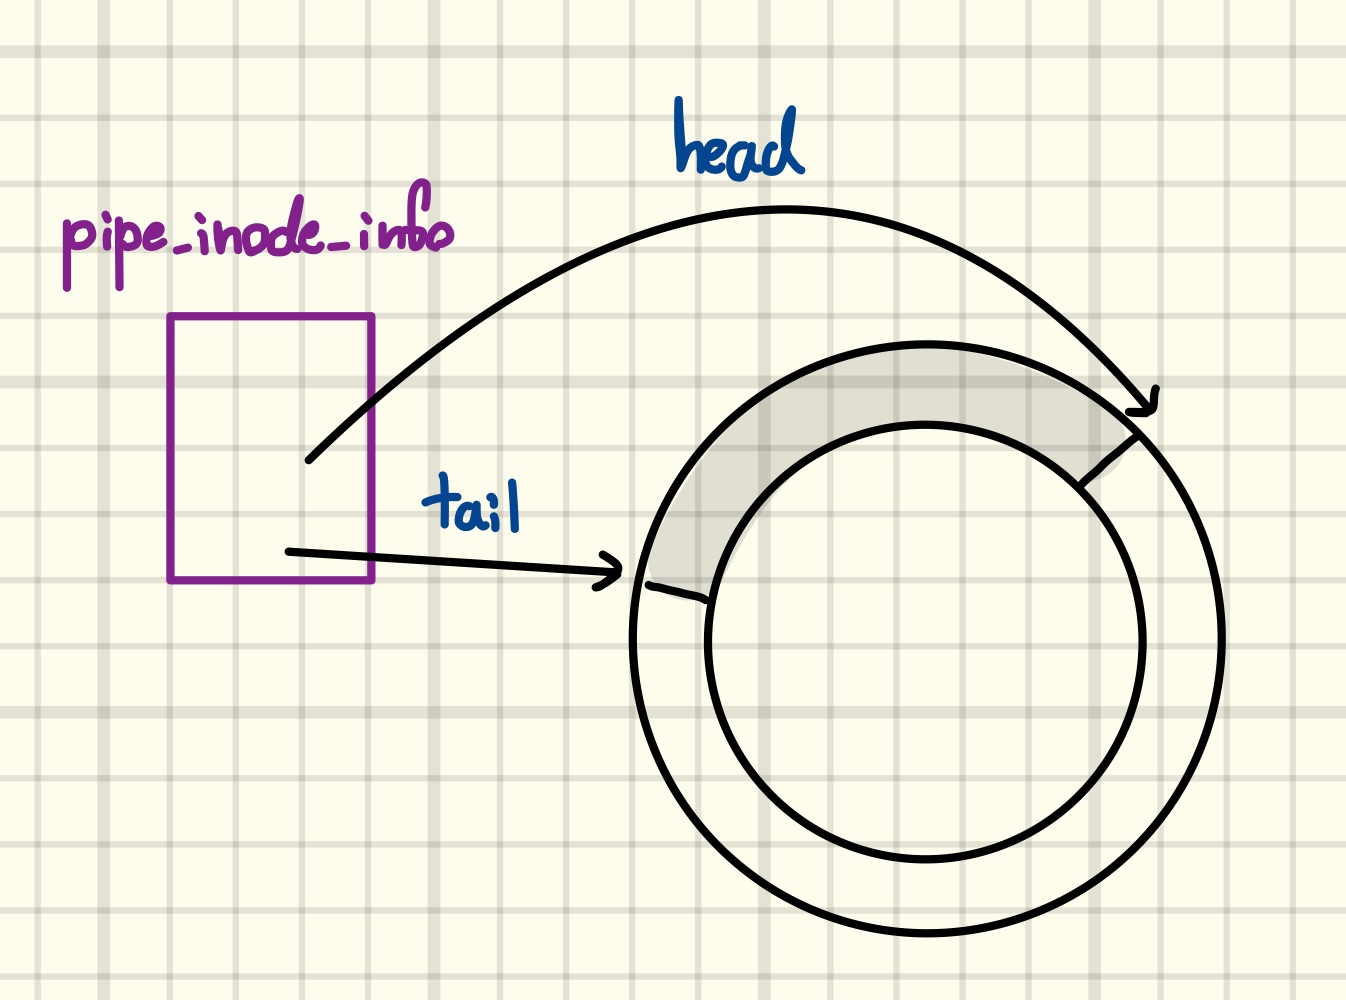 head
pipe_inode_info
tail